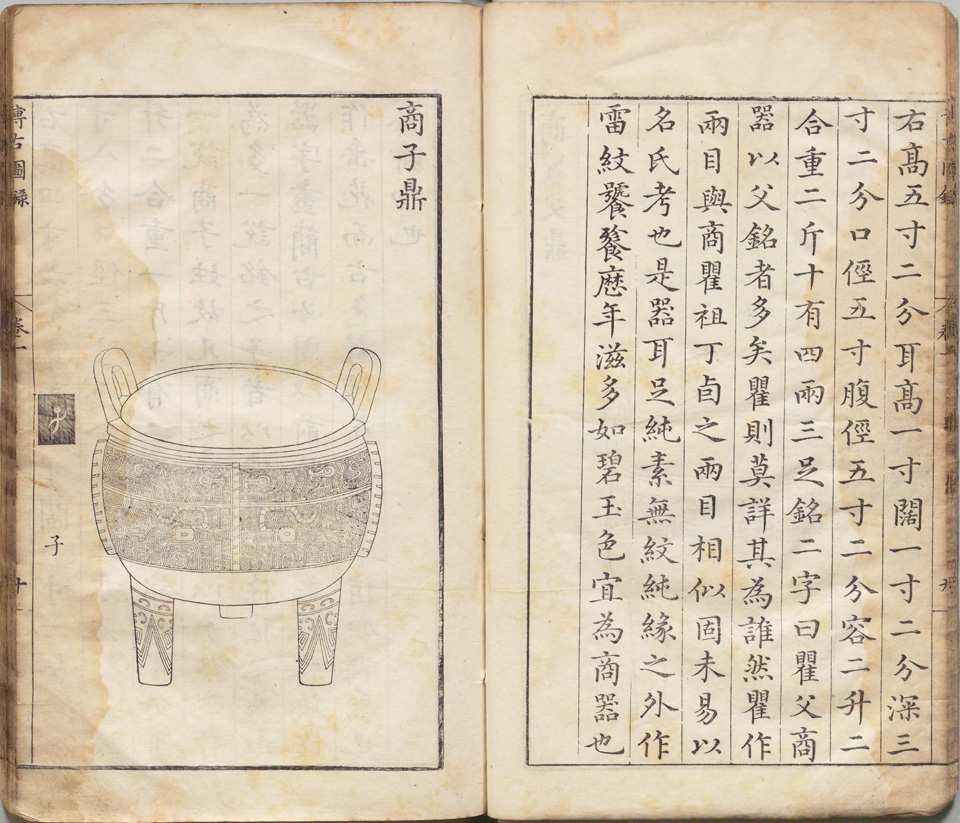 右髙五寸二分耳髙一寸闊一寸二分深三
寸二分口徑五寸腹徑五寸二分容二升二
合重二斤十有四兩三足銘二字曰瞿父商
器以父銘者多矣瞿則莫詳其為誰然瞿作
兩目與商瞿祖丁卣之兩目相似固未易以
名氏考也是器耳足純素無紋純緣之外作
雷紋饕餮歴年滋多如碧玉色宜為商器也
商子鼎
子
博古圖録
卷一
十